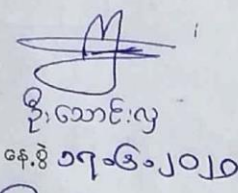 ဦးသောင်းလှ
နေ့စွဲ ၁၇-၆-၂၀၂၁